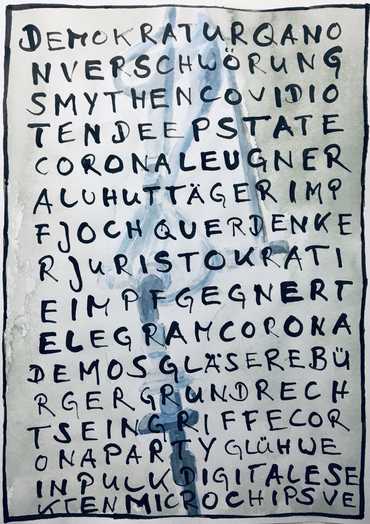 DEMOKRATURQANO
NVERSCHWÖRUNG
SMYTHENCOVIDIO
TENDEEPSTATE
CORONALEUGNER
ALUHUTTÄGERIMP
FJOCHQUERDENKE
RJURISTOKRATI
EIMPFGEGNERT
ELEGRAMCORONA
DEMOSGLÄSEREBÜ
RGERGRUNDRECH
TSEINGRIFFECOR
ONAPARTYGLÜHWE
INPULKDIGITALESE
KTENMICROCHIPSVE